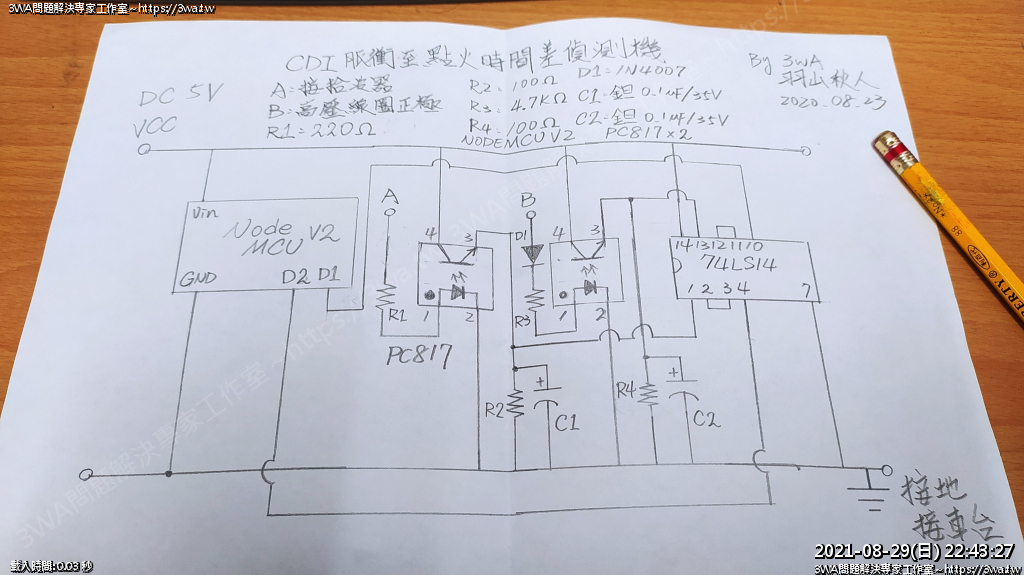 3WA問題解決專家工作室~https://3wa.tw
3WA問題解決專家工作室~https://3wa.tw
CDI 脈衝至點火時間差偵測機
By 3WA
羽山秋人
2020.08.23
DC 5V
VCC
A:接拾波器
B:高壓線圈正極
R1=220Ω
R2:100Ω
R3:4.7KΩ
R4:100Ω
D1=1N4007
C1=鉭0.1uF/35V
C2=鉭0.1uF/35V
NODEMCU V2
PC817×2
A
B
Vin
Node MCU V2
GND
D2 D1
R1
4
3
1
2
PC817
D1
R3
4
3
1
2
14 13 12 11 10
74LS14
1 2 3 4
7
R2
+
C1
R4
+
C2
接地
接車台
3WA問題解決專家工作室~https://
載入時間:0.03 秒
2021-08-29(日) 22:43:27
3WA問題解決專家工作室~https://3wa.tw